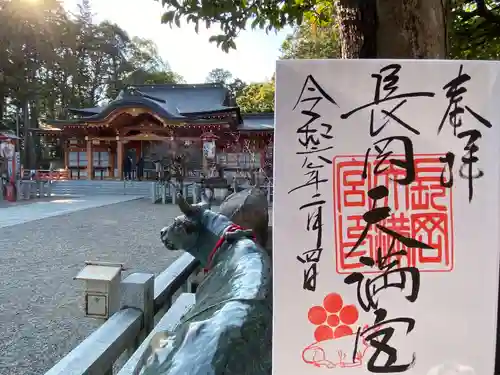 奉拝
長岡天満宮
令和六年二月四日
長岡
天満
宮印